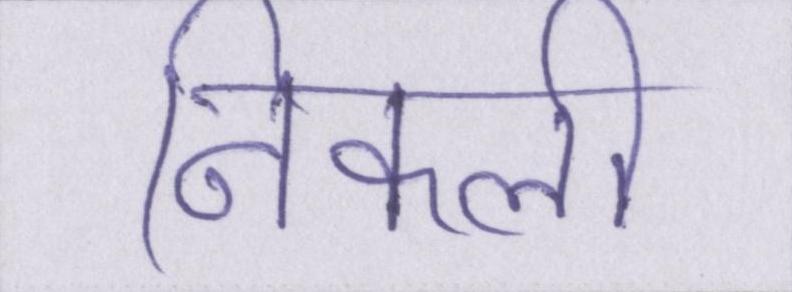 निकली